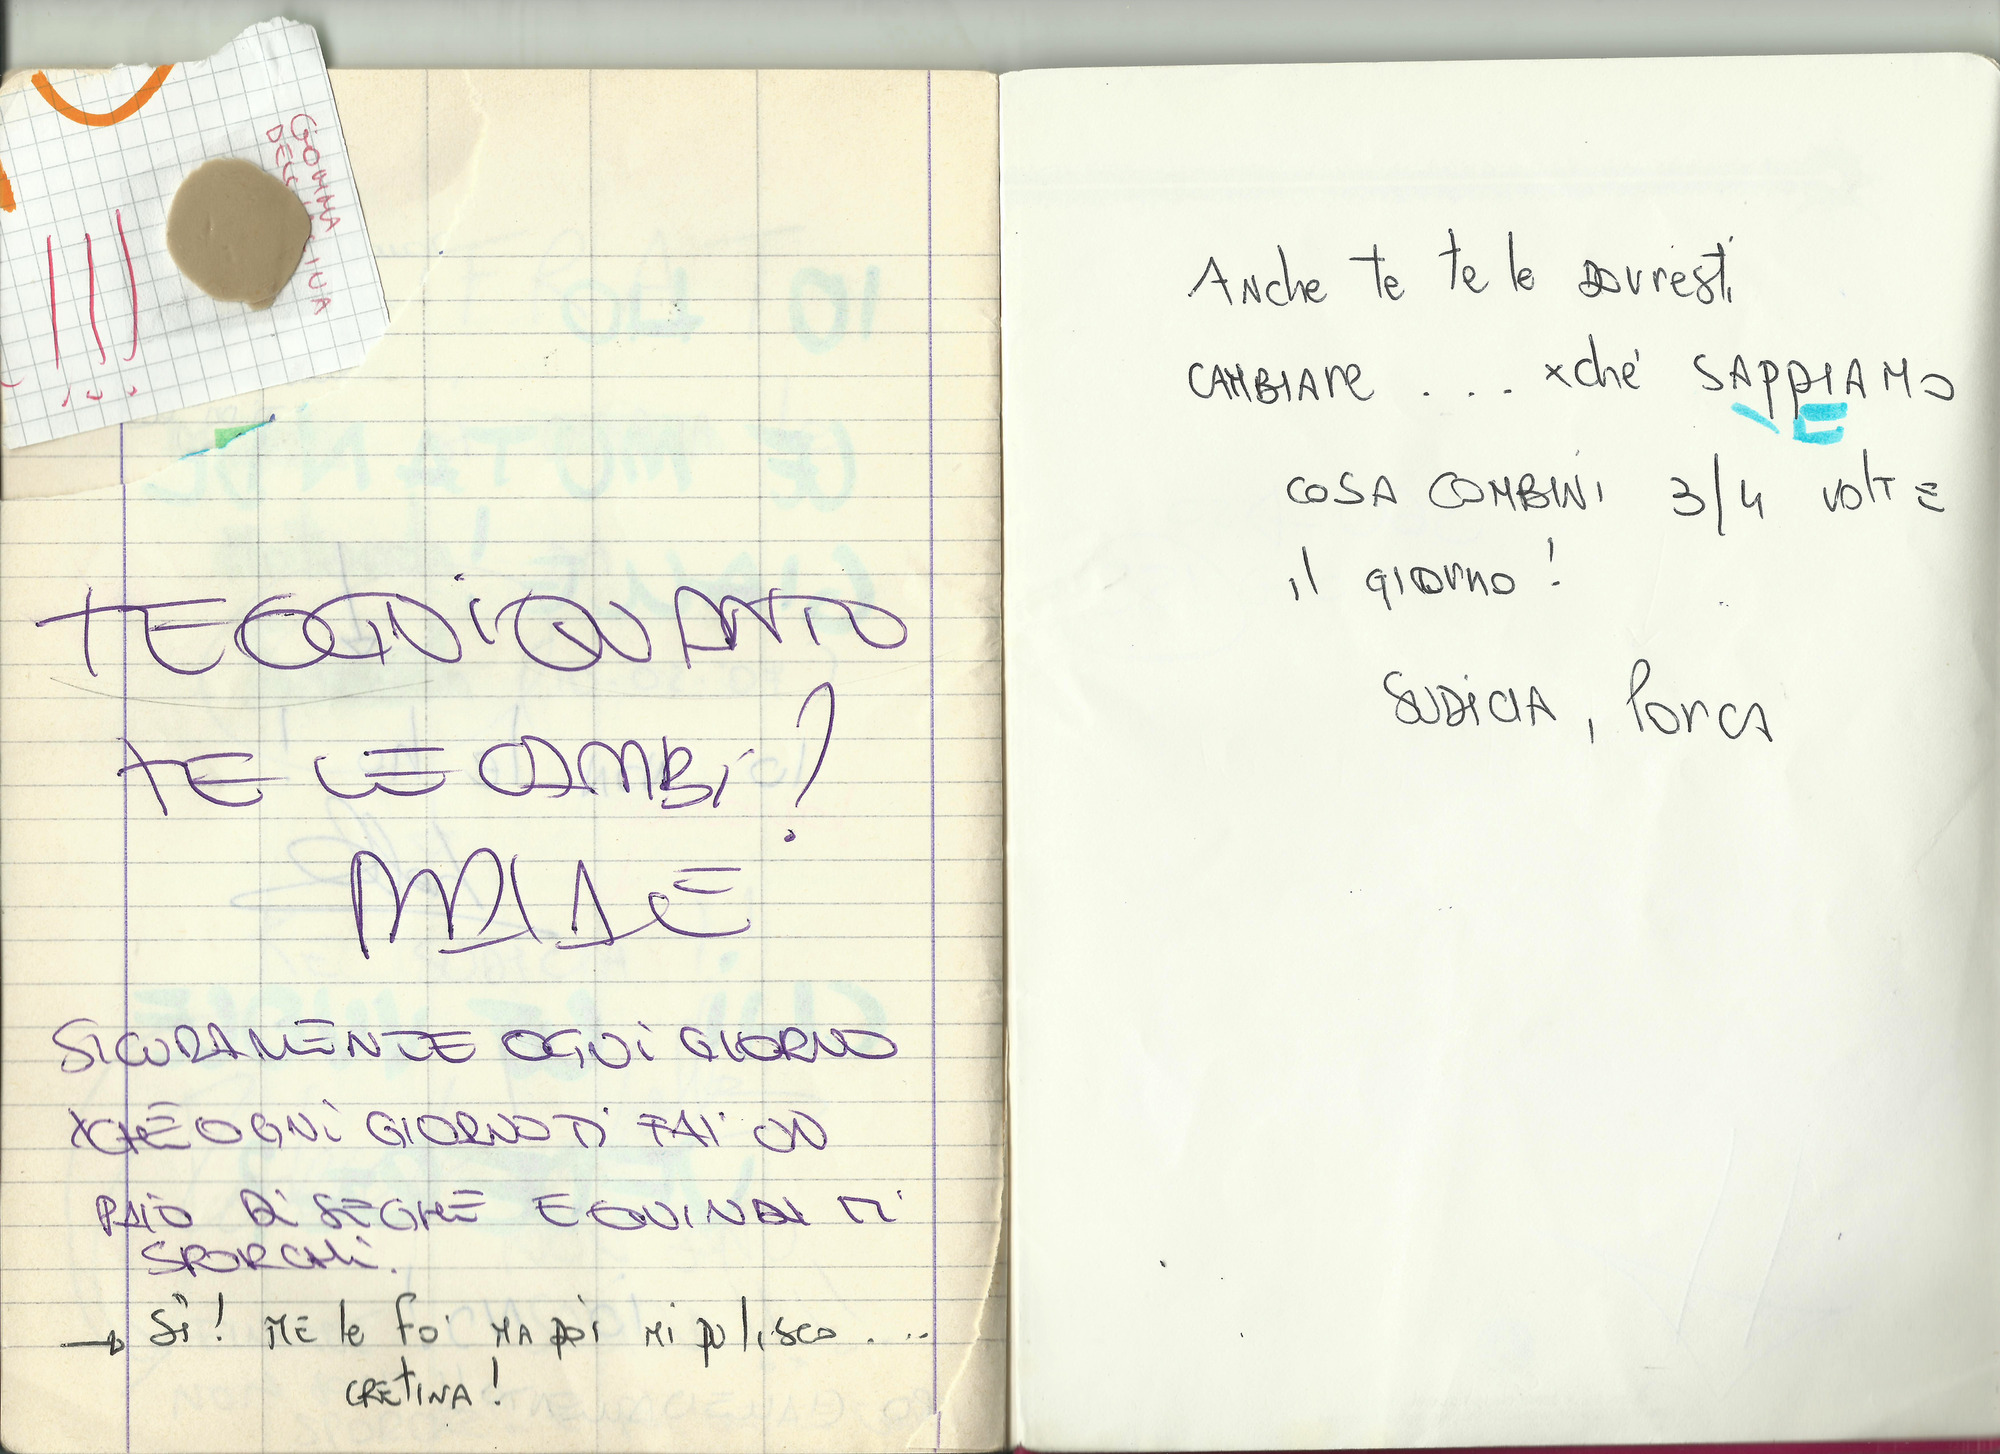 GOMMA
TE OGNI QUANTO
TE LE CAMBI?
SICURAMENTE OGNI GIORNO
XCHÉ OGNI GIORNO TI FAI UN
PAIO DI SEGHE E QUINDI TI
SPORCHI.
→ Sì! ME le fo' MA poi Mi pulisco ....
CRETINA!
Anche Te Te le DOVresti
CAMBIARE .... xché SAPPIAMO
COSA COMBINI 3/4 volTE
il GIORNO!
SUDICIA, PORCA